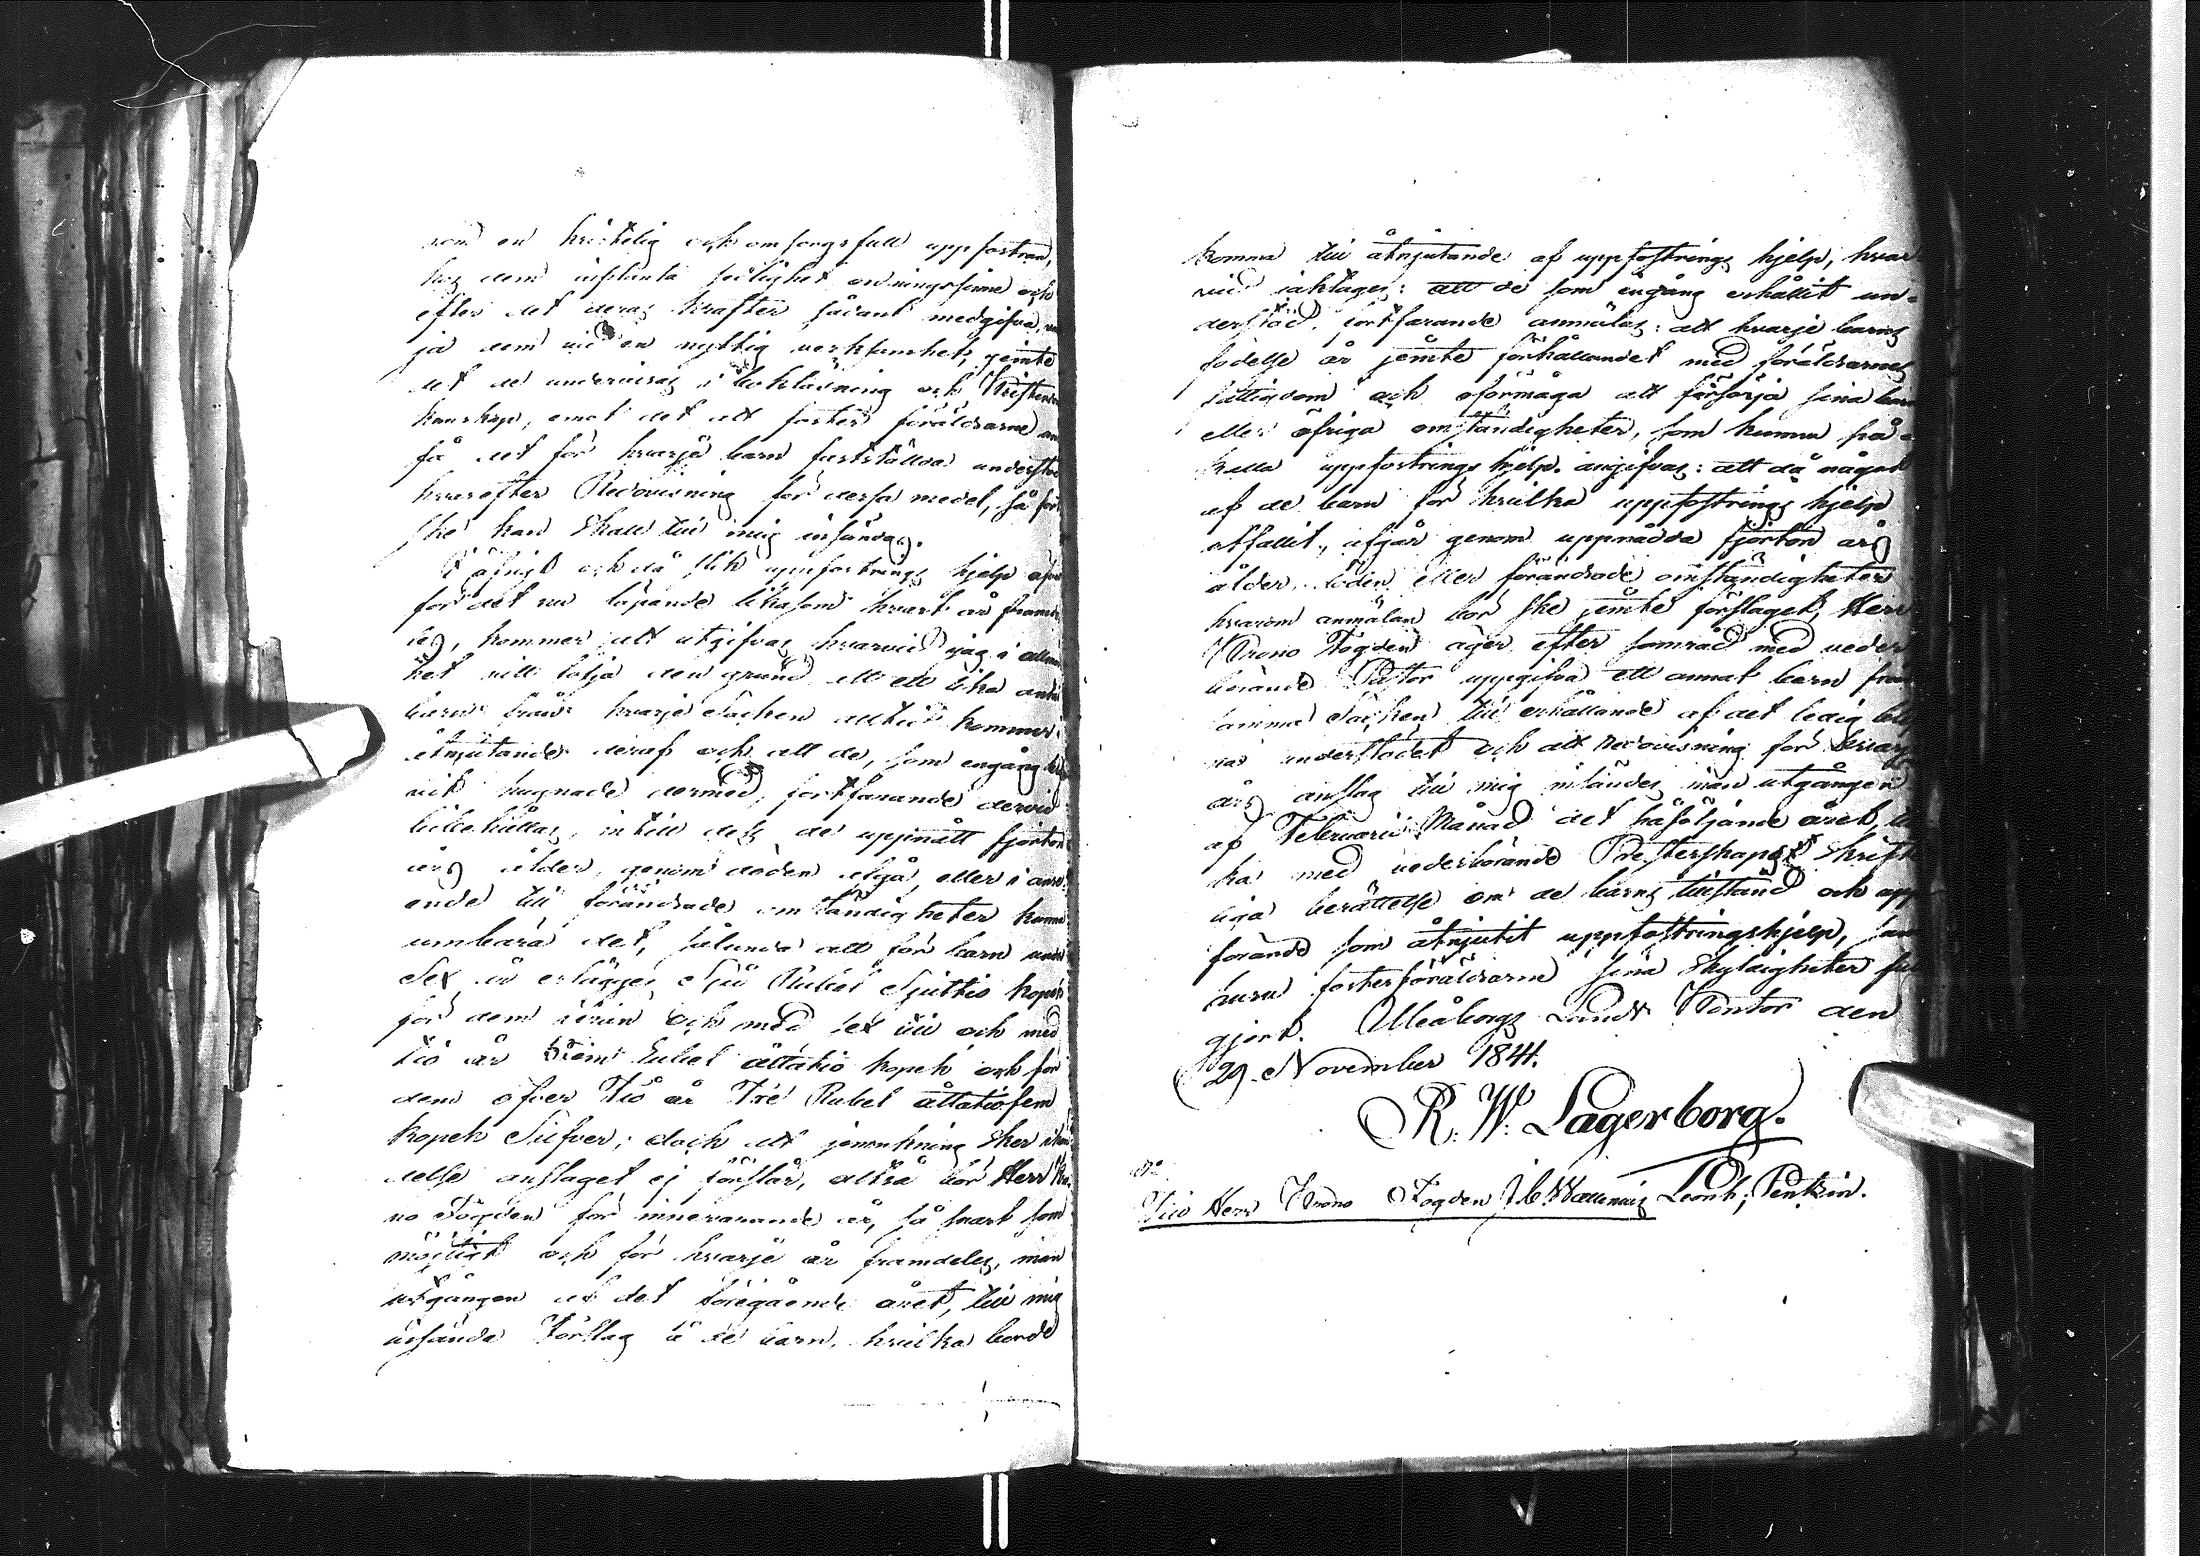 som en kristelig och omsorgsfull uppfostran,
hos dem inplanta sedlighet ordningssinne och
efter det deras krafter sådant medgifva,
ja dem vid en nyttig verksamhet, jemte
det de undervisas i bokläsning och Kristen
kunskap, emot det att foster föräldrarne
få det för hvarje barn fastställda understöd
hvarefter Redovisning för dessa medel, så fort
ske kan skall till mig insändas.
I öfrigt och då slik uppfostrings hjelp
för det nu löpande likasom hvart år framde
les, kommer att utgifvas hvarvid jag i
het vill följa den grund att ett lika antal
barn från hvarje Socken alltid kommer i
åtnjutande deraf och att de, som engång
vit hugnade dermed, fortfarande dervid
bibehållas, intill dess de uppnått fjorton
års ålder, genom döden afgå, eller i anse
ende till förändrade omständigheter kunna
umbära det, sålunda att för barn under
Sex år erlägges Sju Rubel Sjuttio kopek
för dem öfver och med sex till och med
tio år Fem Rubel åttatio kopek och för
dem öfver Tio år Tre Rubel åttatiofem
kopek Silfver; dock att jemnkning sker
delse anslaget ej förslår, altså bör Herr Kro
no Fogden för innevarande år, så snart som
möjligt och för hvarje år framdeles, innan
utgången af det föregående året, till mig
insända Förslag å de barn, hvilka borde
komma till åtnjutande af uppfostrings hjelp, hvar
vid iakttages: att de som engång erhållit un-
derstöd, fortfarande anmälas: att hvarje barns
födelse år jemte förhållandet med föräldrarnes
fattigdom och oförmåga att försörja sina barn
eller öfriga omständigheter, som kunna på-
kalla uppfostrings hjelp, angifvas: att då något
af de barn för hvilka uppfostrings hjelp
utfallit, afgår genom uppnådda fjorton års
ålder, döden eller förändrade omständigheter
hvarom anmälan bör ske jemte förslaget, Herr
Krono Fogden äger efter samråd med veder
börande Pastor uppgifva ett annat barn från
samma Socken till erhållande af det ledig blif
na understödet och att redovisning för hvarje
års anslag till mig insändes innan utgången
af Februarii Månad det påföljande året, li
ka med vederbörande Presterskapets skrift
liga berättelse om de barns tillstånd och upp
förande som åtnjutit uppfostringshjelp, samt
huru fosterföräldrarne sina skyldigheter full
gjort. Uleåborgs Lands Kontor den
29 November 1844.
R. W. Lagerborg.
Till Herr Krono Fogden J. C. Wallenius Leonh; Pentzin.